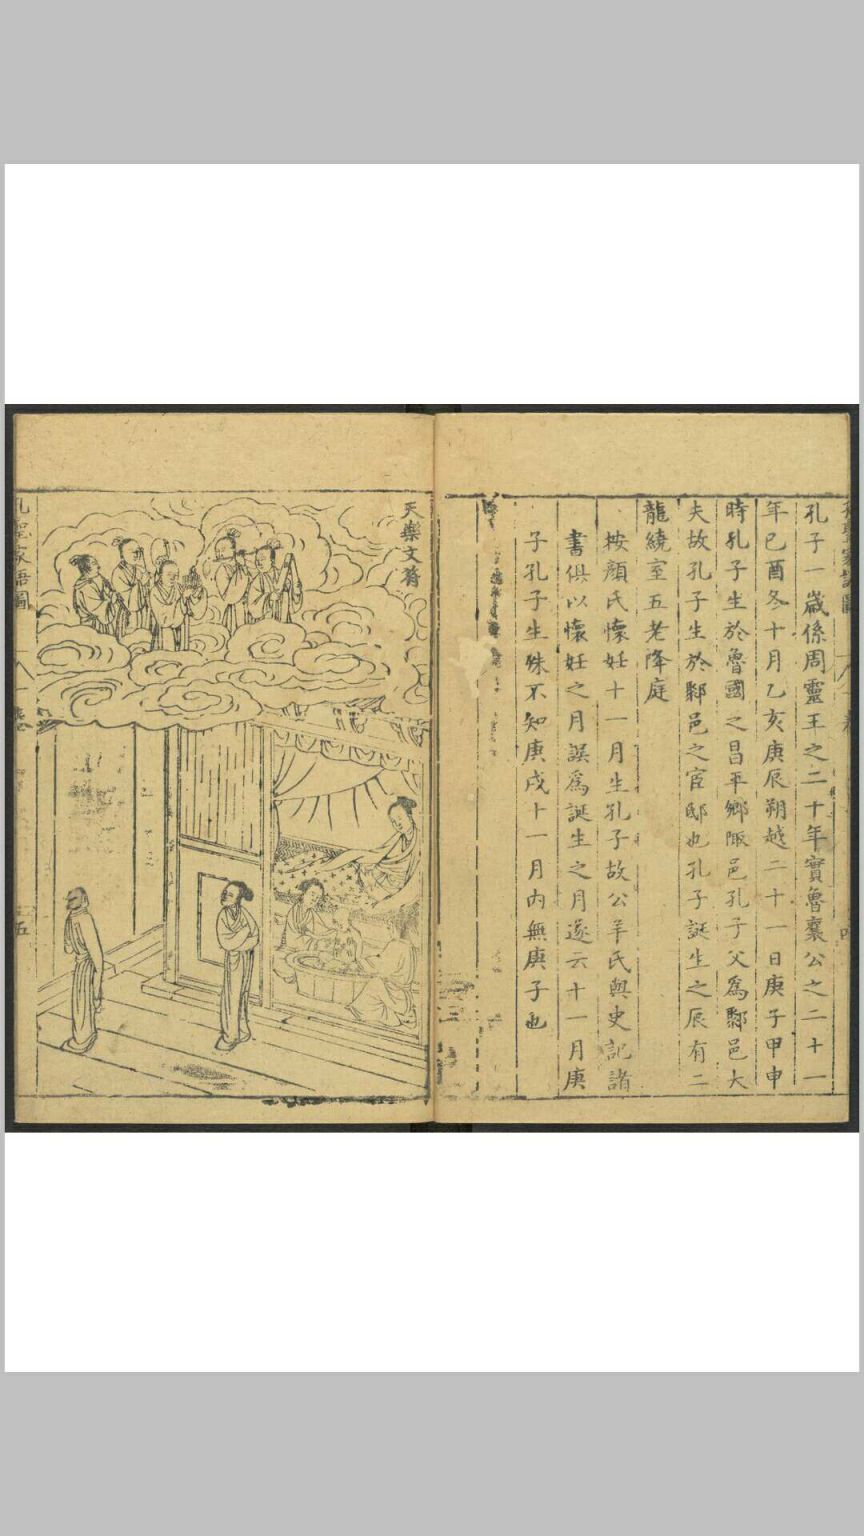 孔子一歲係周靈王之二十年實魯襄公之二十一
年己酉冬十月乙亥庚辰朔越二十一日庚子甲申
時孔子生於魯國之昌平鄉陬邑孔子父為鄹邑大
夫故孔子生於鄹邑之官邸也孔子誕生之辰有二
龍繞室五老降庭
按顏氏懷妊十一月生孔子故公羊氏與史記諸
書俱以懷妊之月誤為誕生之月遂云十一月庚
子孔子生殊不知庚戌十一月內無庚子也
天樂文符
孔聖家語圖
五